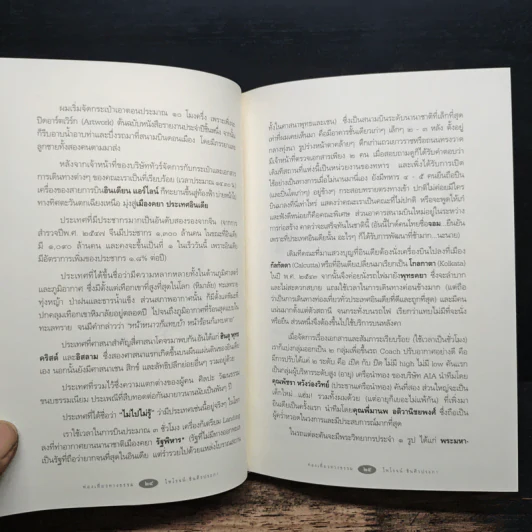 ผมเริ่มจัดกระเป๋าเอาตอนประมาณ ๑๐ โมงครึ่ง เพราะ
ปิดอาร์ตเวิร์ก (Artwork) ต้นฉบับหนังสือรายงานประจำปีชิ้นหนึ่ง จากนั้น
ก็รีบอาบน้ำอาบท่าและบึ่งรถมาที่สนามบินดอนเมือง โดยมีภรรยาและ
ลูกชายทั้งสองคนตามมาส่ง
หลังจากเจ้าหน้าที่ของบริษัททัวร์จัดการกับกระเป๋าและเอกสาร
การเดินทางต่างๆ ของคณะเราเป็นที่เรียบร้อย
เครื่องของสายการบินอินเดียน แอร์ไลน์ ก็ทะยานขึ้นสู่ท้องฟ้า
ทางทิศตะวันตกเฉียงเหนือ มุ่งสู่เมืองคยา ประเทศอินเดีย
ประเทศที่มีประชากรมากเป็นอันดับสองรองจากจีน (จากการ
สำรวจปีพ.ศ. ๒๕๔๗ จีนมีประชากร ๑,๓๐๐ ล้านคน ในขณะที่อินเดีย
มี ๑,๐๙๐ ล้านคน และคงจะขึ้นเป็นที่ ๑ ในเร็ววันนี้ เพราะอินเดีย
มีอัตราการเพิ่มของประชากร ๑.๘% ต่อปี)
ประเทศที่ได้ชื่อว่ามีความหลากหลายทั้งในด้านภูมิศาสตร์
และภูมิอากาศ ซึ่งมีตั้งแต่เทือกเขาที่สูงที่สุดในโลก (หิมาลัย) ทะเลทราย
ทุ่งหญ้า ป่าฝนและชาวน้ำแข็ง ส่วนสภาพอากาศนั้น ก็มีตั้งแต่
ปกคลุมเทือกเขาหิมาลัยอยู่ตลอดปี ไปจนถึงภูมิอากาศที่ร้อนสุดแถบ
ทะเลทราย จนมีคำกล่าวว่า "หน้าหนาวก็แทบบ้า หน้าร้อนก็แทบตาย"
ประเทศที่ศาสนาสำคัญสี่ศาสนาโคจรมาพบกันอันได้แก่ ฮินดู พุทธ
คริสต์ และอิสลาม ซึ่งสองศาสนาแรกเกิดขึ้นบนผืนแผ่นดินของอินเดีย
เอง นอกนั้นยังมีศาสนาเชน สิกข์ และลัทธิปลีกย่อยอื่นๆ รวมอยู่ด้วย
ประเทศที่รวมไว้ซึ่งความแตกต่างของผู้คน ศิลปะ วัฒนธรรม
ขนบธรรมเนียม ประเพณีที่สืบทอดต่อกันมายาวนานนับเป็นพันๆ ปี
ประเทศที่ได้ชื่อว่า "ไม่ไปไม่รู้" ว่ามีประเทศเช่นนี้อยู่จริงๆ ในโลก
เราใช้เวลาในการบินประมาณ ๓ ชั่วโมง เครื่องก็เตรียม Landing
ลงที่ท่าอากาศยานนานาชาติเมืองคยา รัฐพิหาร*
เป็นรัฐที่ถือว่ายากจนที่สุดในอินเดีย แต่ร่ำรวยไปด้วยแหล่งโบราณสถาน
ท่องเที่ยวทางธรรม ๒๔ ไพโรจน์ สินศิริประภา
ทั้งในศาสนาพุทธและเชน) ซึ่งเป็นสนามบินระดับนานาชาติที่เล็กที่สุด
เท่าที่ผมเคยเห็นมา คือมีอาคารชั้นเดียวเก่าๆ เล็กๆ ๒ - ๓ หลัง ตั้งอยู่
กลางทุ่งนา รูปร่างหน้าตาคล้ายๆ ตึกเก่าแถวเยาวราชหรือถนนทรงวาด
มีเจ้าหน้าที่ตรวจเอกสารเพียง ๒ คน เมื่อสอบถามดูก็ได้รับคำตอบว่า
เดิมทีสถานที่แห่งนี้เป็นหน่วยงานของทหาร และเพิ่งได้รับการเปิด
ใช้อย่างเป็นทางการเมื่อไม่นานมานี้เอง ยังมีทหาร ๔ - ๕ คนยืนถือปืน
(และปืนโตๆ) อยู่ข้างๆ
ไม่ปกติ หรือจะพูดให้เก๋
และฟังดีหน่อยก็คือคณะพิเศษ ส่วนอาคารสนามบินใหม่อยู่ในระหว่าง
การก่อสร้าง
เพราะที่ประเทศอินเดียนั้น อะไรๆ ก็ได้รับการพัฒนาที่ช้ามาก...นะนาย)
เดิมทีคณะที่มาแสวงบุญที่อินเดียต้องนั่งเครื่องบินไปลงที่เมือง
กัลกัตตา (Calcutta) หรือที่อินเดียเปลี่ยนมาเรียกเป็น โกลกาตา (Kolkata)
ในปี พ.ศ. ๒๕๔๓ จากนั้นจึงค่อยนั่งรถไฟมายังพุทธคยา ซึ่งจะลำบาก
และไม่สะดวกสบาย แถมใช้เวลาในการเดินทางค่อนข้างมาก (แต่ถือ
ว่าเป็นการเดินทางท่องเที่ยวทั่วประเทศอินเดียที่ดีและถูกที่สุด) และมีคน
แน่นมากตั้งแต่หัวสถานี จนกระทั่งบนรถไฟ เรียกว่าแทบไม่มีที่จะนั่ง
หรือยืน ส่วนหนึ่งจึงต้องขึ้นไปใช้บริการบนหลังคา
เมื่อจัดการเรื่องเอกสารและสัมภาระเรียบร้อย (ใช้เวลาเป็นชั่วโมง)
เราก็แบ่งกลุ่มออกเป็น ๒ กลุ่มเพื่อขึ้นรถ Coach ปรับอากาศอย่างดี คือ
มีการปรับได้แค่ ๒ ระดับ คือ เปิด กับ ปิด ไม่มี high ไม่มี low คันแรก
เป็นกลุ่มผู้บริหารระดับสูง (อายุ) เครือข่ายของบริษัท AIA นำทีมโดย
คุณพัชรา หวังว่องวิทย์ (ประธานเครือข่าย) คันที่สอง ส่วนใหญ่จะเป็น
เด็กใหม่ แฮ่ม! รวมทั้งผมด้วย (แต่อายุก็เยอะไม่แพ้กัน) ที่เพิ่งมา
อินเดียเป็นครั้งแรก นำทีมโดยคุณพีมานพ อติวานิชยพงศ์ ซึ่งถือเป็น
ผู้คร่ำหวอดในวงการและมีประสบการณ์มากที่สุด
ในรถแต่ละคันจะมีพระวิทยากรประจำ ๑ รูป ได้แก่ พระมหา-
ท่องเที่ยวทางธรรม ๒๕ ไพโรจน์ สินศิริประภา